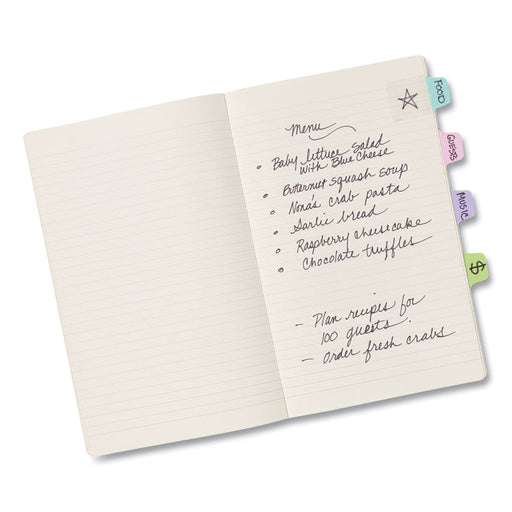 Menu
Baby lettuce salad
with Blue Cheese
Butternut squash soup
Nona's crab pasta
Garlic bread
Raspberry cheesecake
Chocolate truffles
- Plan recipes for
100 guests.
- Order fresh crabs
FOOD
GUESTS
MUSIC
$